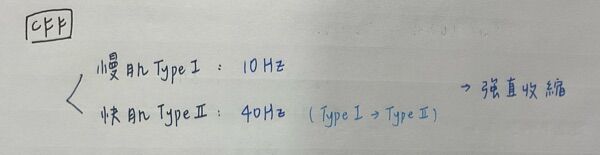 CFF
慢肌 Type I : 10Hz
快肌 Type II : 40Hz (Type I → Type II) → 強直收縮